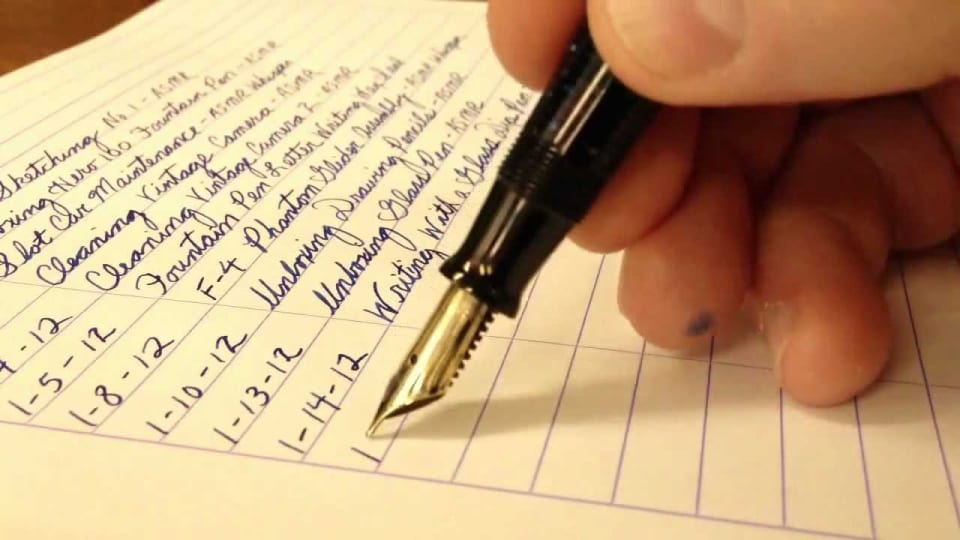 Sketching No. 1 - ASMR
Fountain Pen - ASMR
Slot Car Maintenance - ASMR Whisper
Cleaning Vintage Camera - ASMR
4-12 Cleaning Vintage Camera 2 ASMR
1-5-12 Fountain Pen Letter Writing
1-8-12 F-4 Phantom Slider Assembly - ASMR Whisper
1-10-12 Unboxing Drawing Pencils - ASMR
1-13-12 Unboxing Glass Pen - ASMR
1-14-12 Writing With a Glass Dip Pen
1